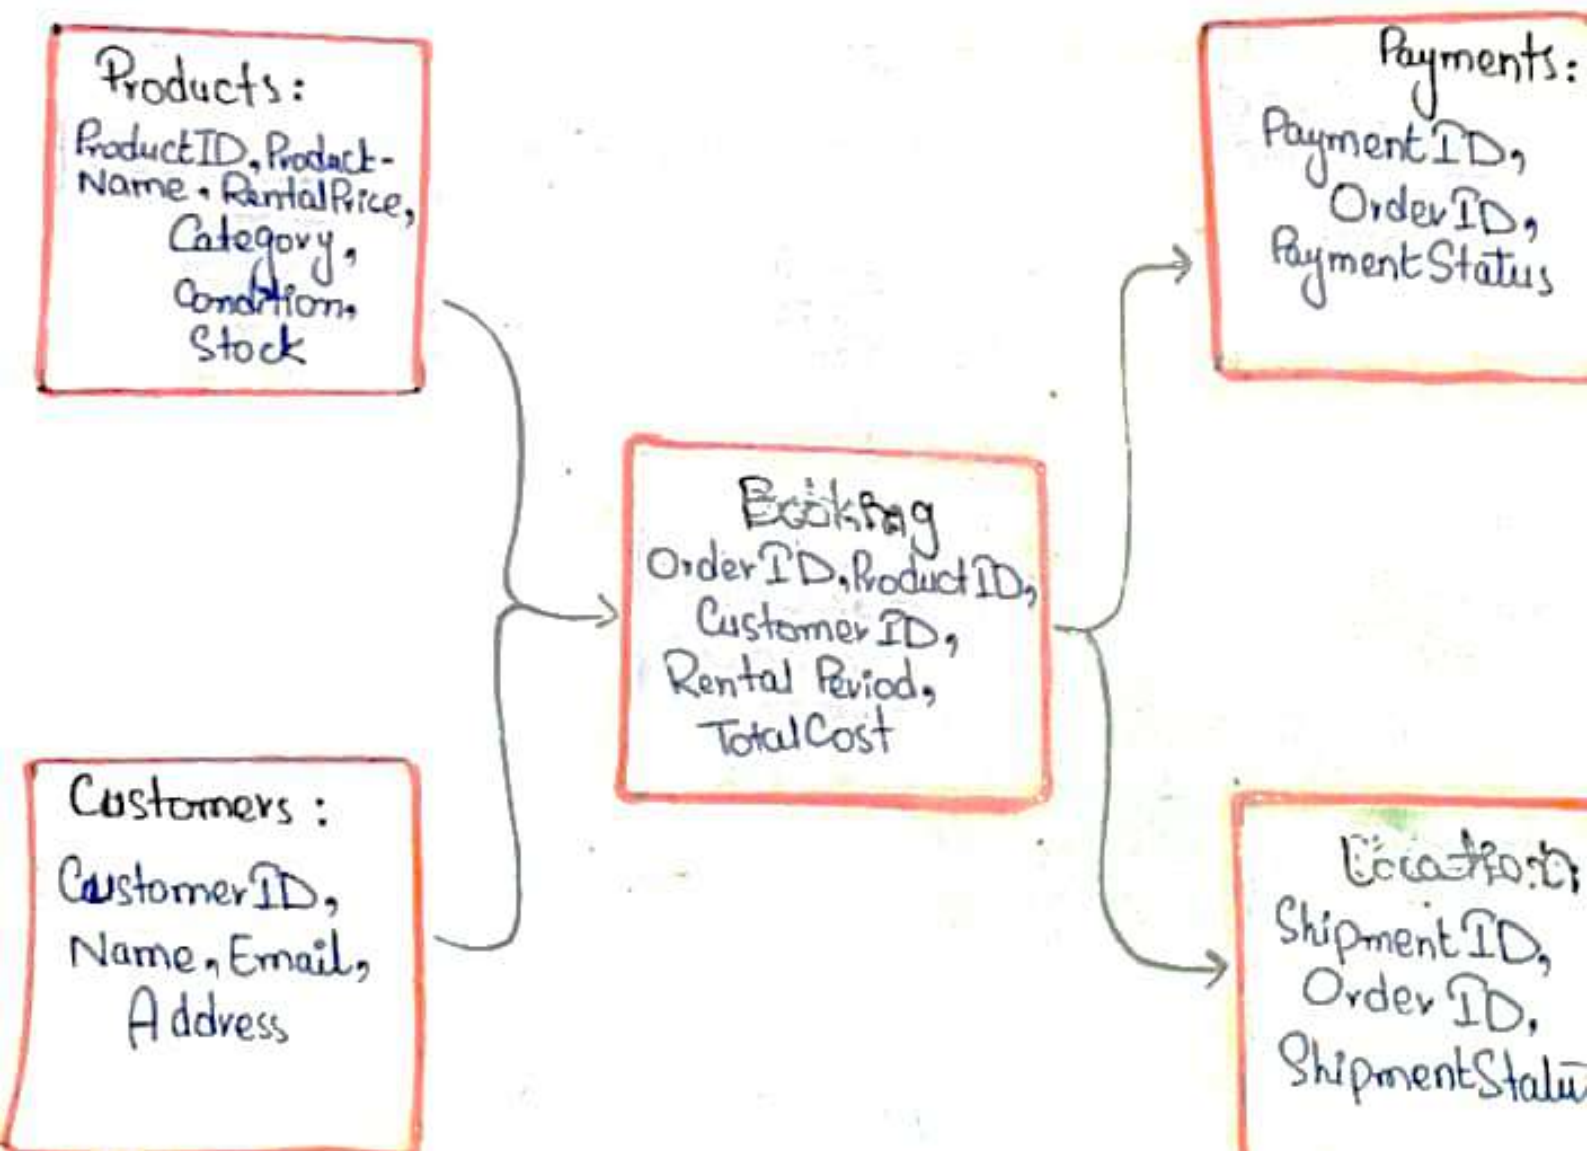 Products:
ProductID, Product-
Name, RentalPrice,
Category,
Condition,
Stock
Customers :
CustomerID,
Name, Email,
Address
Booking
OrderID, ProductID,
Customer ID,
Rental Period,
TotalCost
Payments:
PaymentID,
OrderID,
PaymentStatus
Location:
ShipmentID,
Order ID,
ShipmentStatu